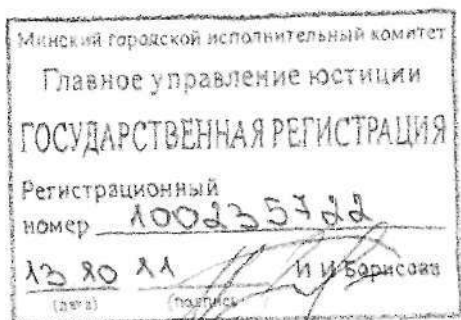 Минский городской исполнительный комитет
Главное управление юстиции
ГОСУДАРСТВЕННАЯ РЕГИСТРАЦИЯ
Регистрационный
номер 100235722
И И Борисова
(дата) (подпись